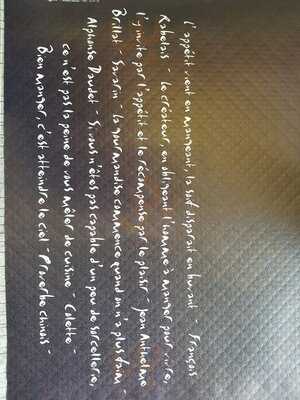 L'appétit vient en mangeant, la soif disparait en buvant - François
Rabelais - Le créateur, en obligeant l'homme à manger pour vivre,
l'y invite par l'appétit et le récompense par le plaisir - Jean Anthelme
Brillat-Savarin - La gourmandise commence quand on n'a plus faim -
Alphonse Daudet - Si vous n'êtes pas capable d'un peu de sorcellerie,
ce n'est pas la peine de vous mêler de cuisine - Colette -
Bien manger, c'est atteindre le ciel - Proverbe chinois -